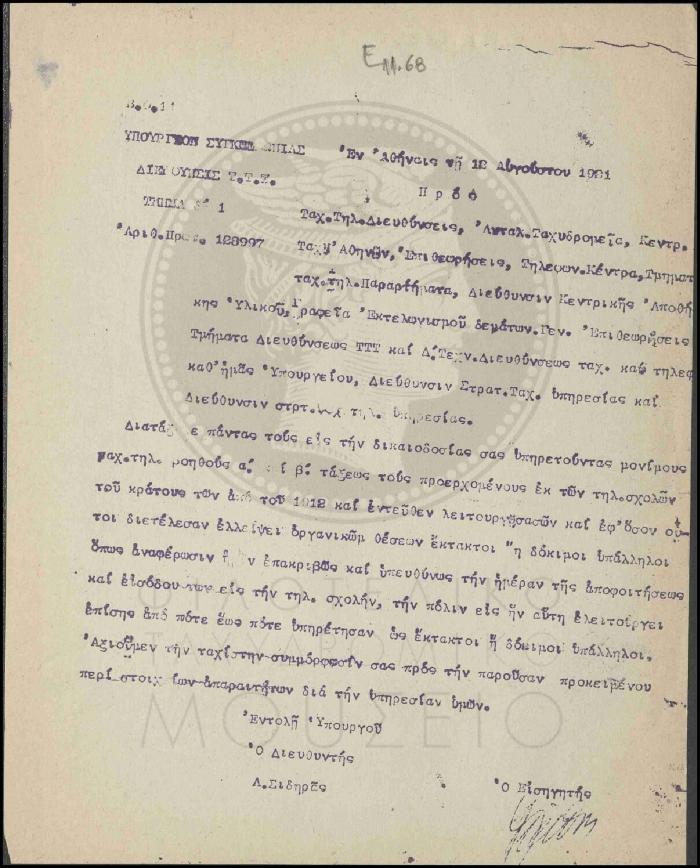 Ε 11.68
Β.Θ.11
ΥΠΟΥΡΓΕΙΟΝ ΣΥΓΚΟΙΝΩΝΙΑΣ Ἐν Ἀθήναις τῇ 12 Αὐγούστου 1921
ΔΙΕΥΘΥΝΣΙΣ Τ.Τ.Τ. Πρός
ΤΜΗΜΑ 1 Ταχ.Τηλ.Διευθύνσεις, Ἀνταλ.Ταχυδρομεῖα, Κεντρ.
Ἀριθ.Πρωτ. 128997 Ταχ Ἀθηνῶν, Ἐπιθεωρήσεις, Τηλεφων.Κέντρα, Τμηματ
ταχ.τηλ.Παραρτήματα, Διεύθυνσιν Κεντρικῆς Ἀποθή
κης Ὑλικοῦ, Γραφεῖα Ἐκτελωνισμοῦ δεμάτων.Γεν. Ἐπιθεωρήσεις
Τμήματα Διευθύνσεως ΤΤΤ καί Δ.Τεχν.Διευθύνσεως ταχ. καί τηλεφ
καθ'ἡμᾶς Ὑπουργείου, Διεύθυνσιν Στρατ.Ταχ. ὑπηρεσίας καί
Διεύθυνσιν στρτ. τηλ. ὑπηρεσίας.
πάντας τούς εἰς τήν δικαιοδοσίας σας ὑπηρετοῦντας μονίμους
ταχ.τηλ. βοηθούς α. καί β. τάξεως τούς προερχομένους ἐκ τῶν τηλ.σχολῶν
τοῦ κράτους τῶν ἀπό τοῦ 1912 καί ἐντεῦθεν λειτουργησασῶν καί ἐφ'ὅσον οὗ-
τοι διετέλεσαν ἐλλείψει ὀργανικῶν θέσεων ἔκτακτοι ἤ δόκιμοι ὑπάλληλοι
ὅπως ἀναφέρωσιν ἡμῖν ἐπακριβῶς καί ὑπευθύνως τήν ἡμέραν τῆς ἀποφοιτήσεως
καί εἰσόδου των εἰς τήν τηλ. σχολήν, τήν πόλιν εἰς ἥν αὕτη ἐλειτούργει
ἐπίσης ἀπό πότε ἕως πότε ὑπηρέτησαν ὡς ἔκτακτοι ἤ δόκιμοι ὑπάλληλοι.
Ἀξιοῦμεν τήν ταχίστην συμμόρφωσίν σας πρός τήν παροῦσαν προκειμένου
περί στοιχείων ἀπαραιτήτων διά τήν ὑπηρεσίαν ἡμῶν.
Ἐντολῇ Ὑπουργοῦ
Ὁ Διευθυντής
Λ.Σιδηρᾶς Ὁ Εἰσηγητής
ΦΙΛΟΤΕΛΙΚΟ
ΤΑΧΥΔΡΟΜΙΚΟ
ΜΟΥΣΕΙΟ